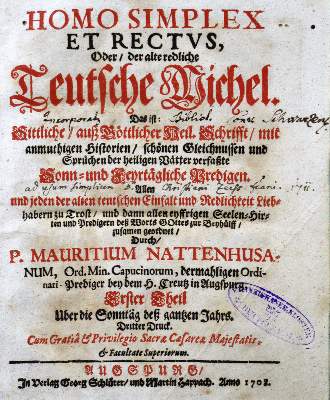 HOMO SIMPLEX
ET RECTVS,
Oder/ der alte redliche
Teutsche Michel.
Das ist:
Sittliche/ auß Göttlicher Heil. Schrifft/ mit
anmuthigen Historien/ schönen Gleichnussen und
Sprüchen der heiligen Vätter verfaßte
Sonn- und Feyrtägliche Predigen.
Allen
und jeden der alten teutschen Einfalt und Redlichkeit Lieb-
habern zu Trost/ und dann allen eyffrigen Seelen-Hir-
ten und Predigern deß Worts GOttes zur Beyhülff/
zusamen geordnet/
Durch/
P. MAURITIUM NATTENHUSA-
NUM, Ord. Min. Capucinorum, dermahligen Ordi-
nari-Prediger bey dem H. Creutz in Augspurg
Erster Theil
Uber die Sonntäg deß gantzen Jahrs.
Dritter Druck.
Cum Gratiâ & Privilegio Sacræ Cæsareæ Majestatis,
& Facultate Superiorum.
AUGSPURG/
In Verlag Georg Schlüter/ und Martin Happach. Anno 1708.